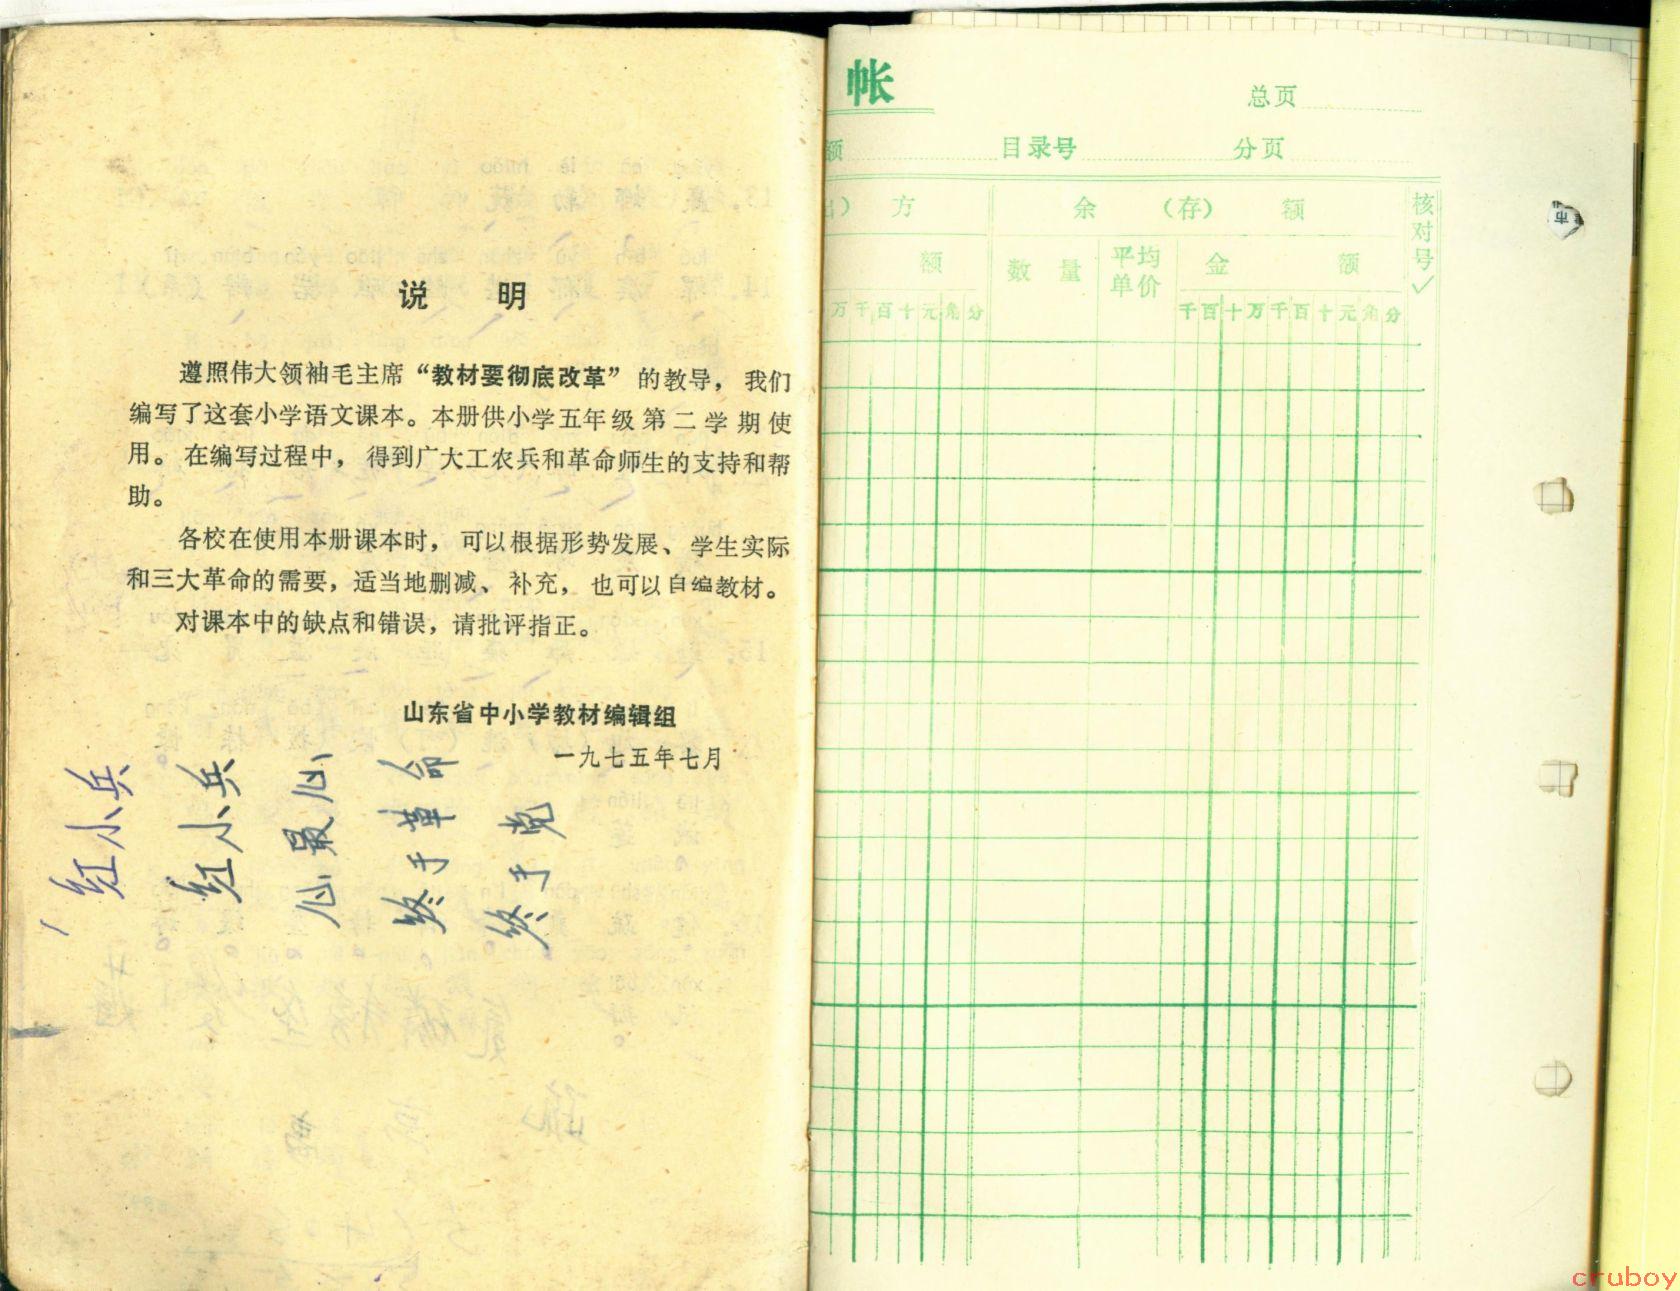 说 明
遵照伟大领袖毛主席“教材要彻底改革”的教导，我们
编写了这套小学语文课本。本册供小学五年级第二学期使
用。在编写过程中，得到广大工农兵和革命师生的支持和帮
助。
各校在使用本册课本时，可以根据形势发展、学生实际
和三大革命的需要，适当地删减、补充，也可以自编教材。
对课本中的缺点和错误，请批评指正。
山东省中小学教材编辑组
一九七五年七月
红小兵
红小兵
心最心
终于革命
终于党
帐
总页
额 目录号 分页
出） 方 余 （存） 额 核对号✓
额 数 量 平均单价 金 额
万千百十元角分 千百十万千百十元角分
市
cruboy